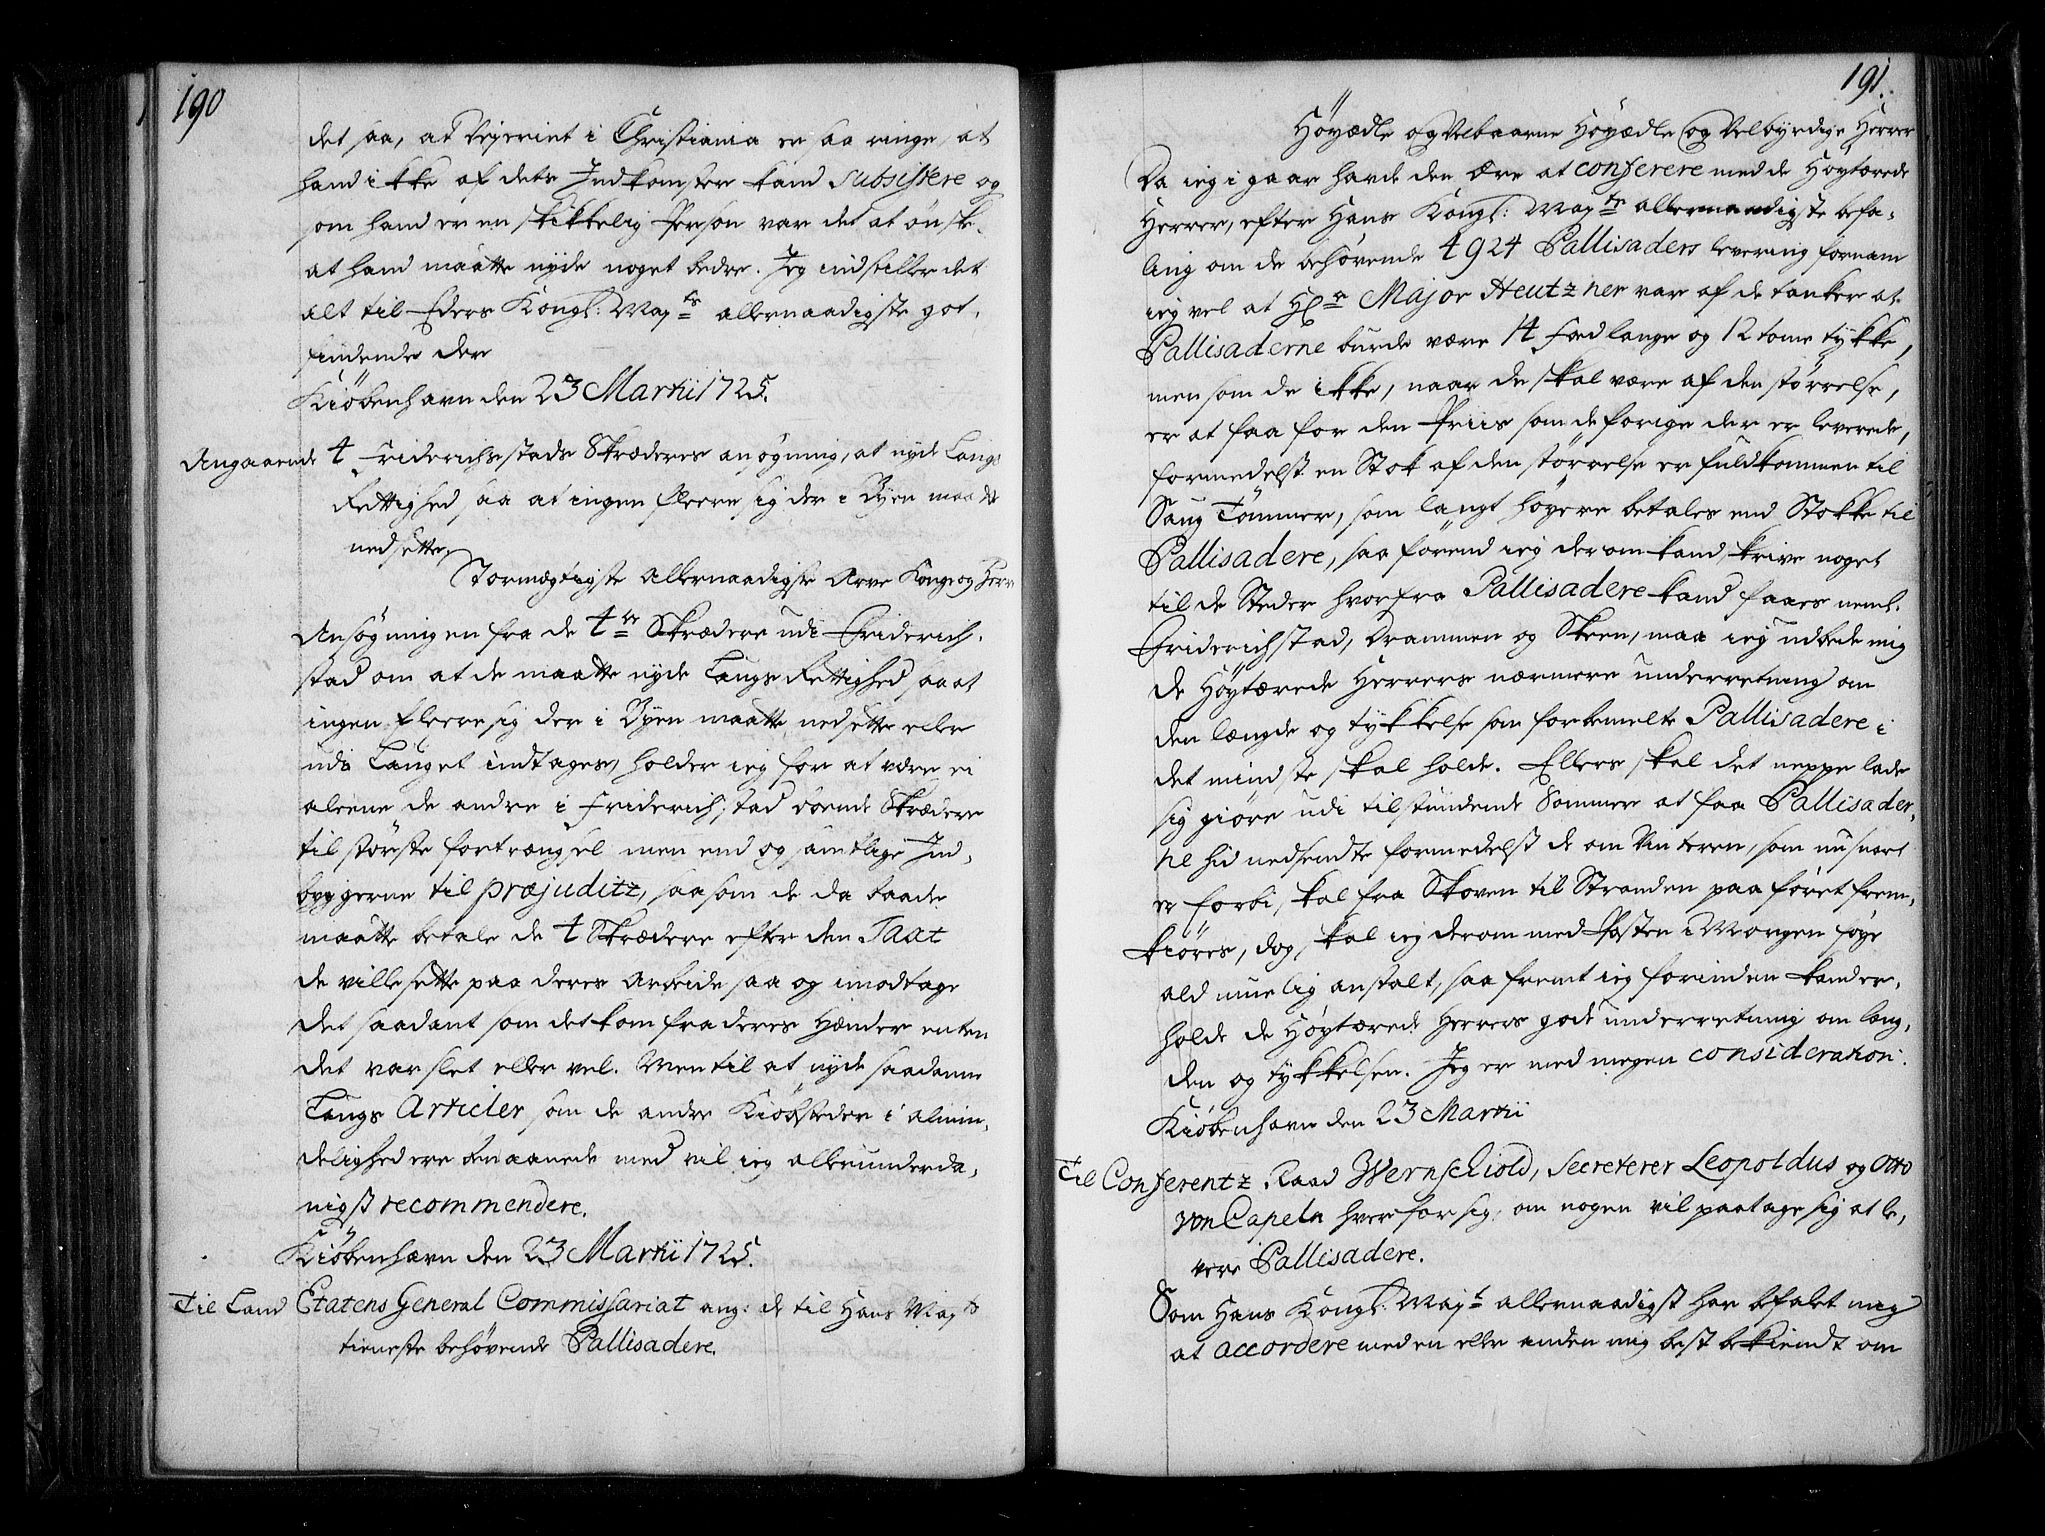 190
det saa, at Vejeriet i Christiania er saa ringe, at
hand ikke af dets Indkomster kand subsistere og
som hand er en skikkelig Person var det at ønske,
at hand maatte nyde noget bedre. Jeg indstiller det
alt til Eders Kongl: Mayts allernaadigste got,
findende der
Kiøbenhavn den 23 Martii 1725.
Angaaende 4 Friderichsstads Skræderes ansøgning, at nyde Laugs
Rettighed saa at ingen fleere sig der i Byen maatte
nedsette,
Stormægtigste Allernaadigste Arve Konge og Herre
Ansøgningen fra de 4re Skrædere udi Friderich,
stad om at de maatte nyde Laugs Rettighed saa at
ingen fleere sig der i Byen maatte nedsette eller
udi Lauget indtages, holder jeg for at være ei
aleene de andre i Friderichstad boende Skrædere
til største fortrængsel men end og samtlige Ind,
byggerne til præjuditz, saasom de da baade
maatte betale de 4 Skrædere efter den Taxt
de ville sette paa deres Arbeide saa og imodtage
det saadant som det kom fra deres Hænder enten
det var slet eller vel. Men til at nyde saadanne
Laugs Articler som de andre Kiøbsteder i almin,
delighed ere benaadede med vil jeg allerunderda,
nigst recommendere.
Kiøbenhavn den 23 Martii 1725.
Til Land Etatens General Commissariat ang: de til Hans Mayts
tieneste behøvende Pallisadere.
191.
Høyædle og Velbaarne Høyædle og Velbyrdige Herrer
Da jeg i gaar havde den Ære at conferere med de Høytærede
Herrer, efter Hans Kongl: Mayts allernaadigste befa,
ling om de behøvende 4924 Pallisaders levering fornam
jeg vel at Hr Major Heutzner var af de tanker at
Pallisaderne burde være 14 fod lange og 12 tome tykke,
men som de ikke, naar de skal være af den størrelse,
er at faa for den Priis som de forige der er leverede,
formedelst en Stok af den størrelse er fuldkommen til
Saug Tømmer, som langt høyere betales end Stokke til
Pallisadere, saa forend jeg derom kand skrive noget
til de Steder hvorfra Pallisadere kand faaes neml.
Friderichstad, Drammen og Skeen, maa jeg udbede mig
de Høytærede Herrers nærmere underretning om
den længde og tykkelse som forbemelte Pallisadere i
det mindste skal holde. Ellers skal det neppe lade
sig giøre udi tilstundende Sommer at faa Pallisader,
ne hid nedsendte formedelst de om Vinteren, som nu snart
er forbi, skal fra Skoven til Stranden paa føret frem,
kiøres, dog skal jeg derom med Posten i Morgen søge
ald muelig anstalt, saa fremt jeg forinden kand er,
holde de Høytærede Herrers gode underretning om læng,
den og tykkelsen. Jeg er med megen consideration.
Kiøbenhavn den 23 Martii
Til Conferentz Raad Wernschiold, Secreterer Leopoldus og Otto
von Capeln hver for sig, om nogen vil paatage sig at le,
vere Pallisadere.
Som Hans Kongl: Mayt allernaadigst har befalet mig
at accordere med en eller anden mig best bekiendt om